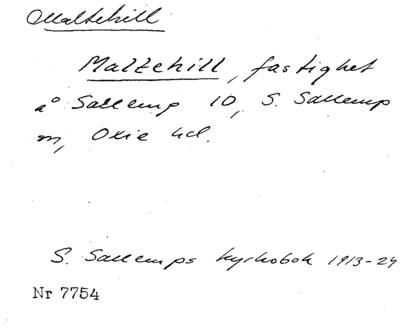 Maltehill
Maltehill, fastighet
å Sallerup 10, S. Sallerup
sn, Oxie hd.
S. Sallerups kyrkobok 1913-24
Nr 7754